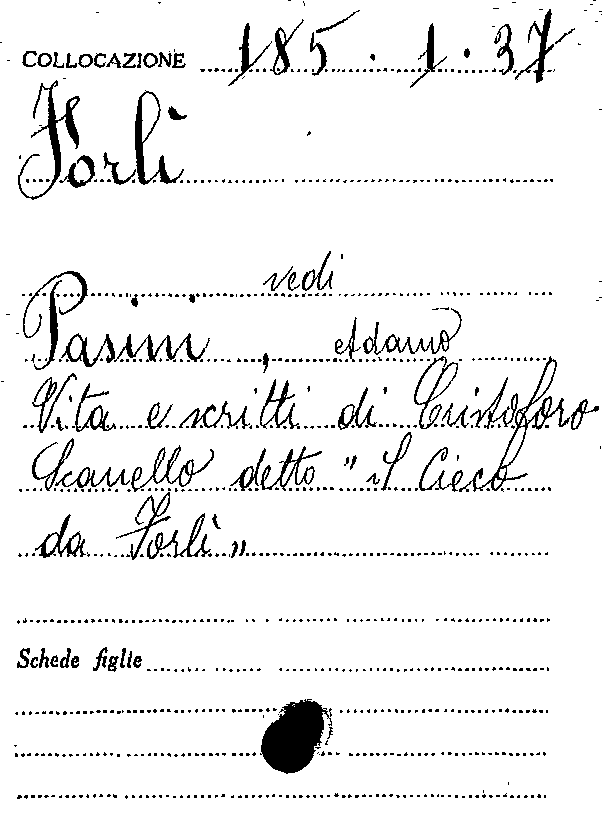 COLLOCAZIONE 185.1.37
Forlì
vedi
Pasini, Adamo
Vita e scritti di Cristoforo
Scanello detto "il Cieco
da Forlì"
Schede figlie